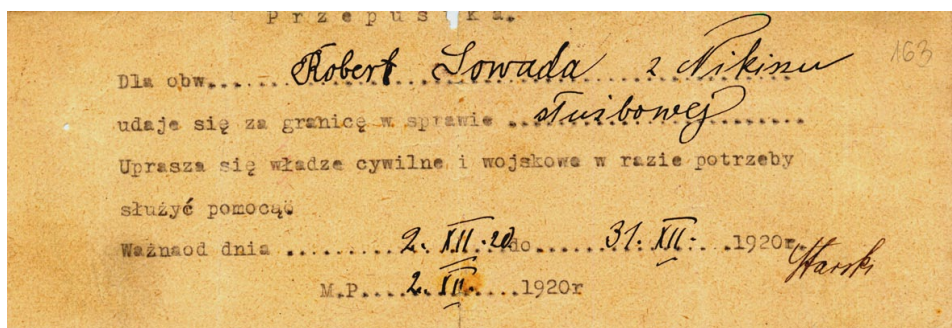 Przepustka.
163
Dla obw....Robert Sowada z Nikinu
udaje się za granicę w sprawie ..służbowej.........
Uprasza się władze cywilne i wojskowe w razie potrzeby
służyć pomocą
Ważnaod dnia ..........2. XII. 20 do.....31. XII. ..1920r.
M.P....2. XII.....1920r